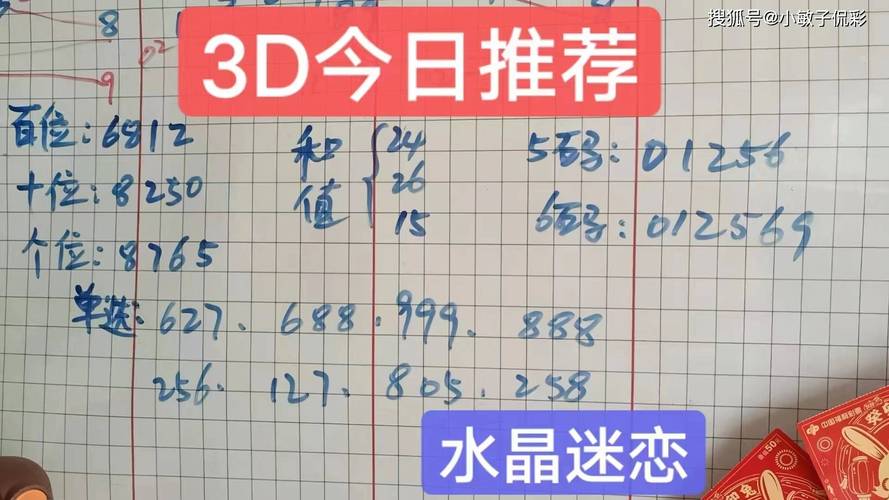 搜狐号@小敏子侃彩
8
0²
9
3D今日推荐
百位:6812
十位:8250
个位:8765
和值{24
26
15
5码:01256
6码:012569
单选:627.688.999.888
256.127.805.258
水晶迷恋
中国福利彩票